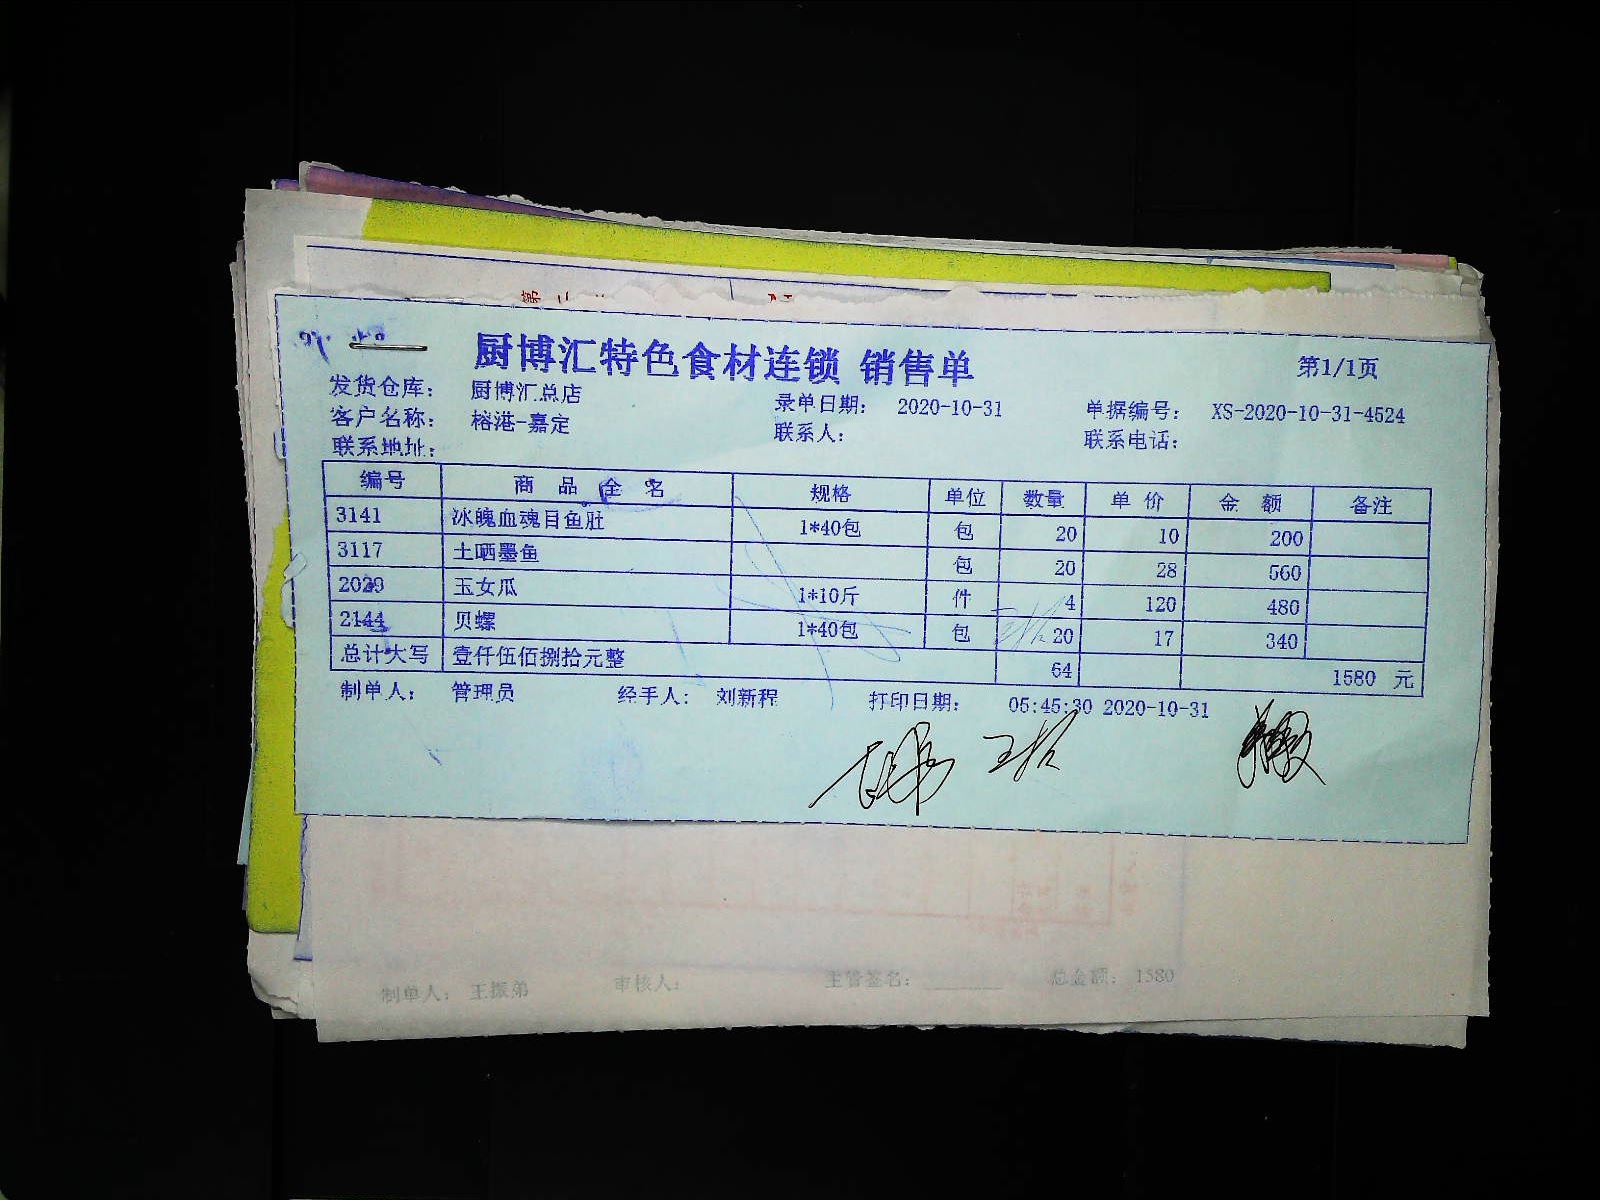 第二
厨博汇特色食材连锁 销售单 第1/1页
发货仓库： 厨博汇总店 录单日期： 2020-10-31 单据编号： XS-2020-10-31-4524
客户名称： 榕港-嘉定 联系人： 联系电话：
联系地址：
编号 商品全名 规格 单位 数量 单价 金额 备注
3141 冰魄血魂目鱼肚 1*40包 包 20 10 200
3117 土晒墨鱼 包 20 28 560
2029 玉女瓜 1*10斤 件 4 120 480
2144 贝螺 1*40包 包 20 17 340
总计大写 壹仟伍佰捌拾元整 64 1580 元
制单人： 管理员 经手人： 刘新程 打印日期： 05:45:30 2020-10-31
制单人： 王振弟 审核人： 主管签名： 总金额： 1580